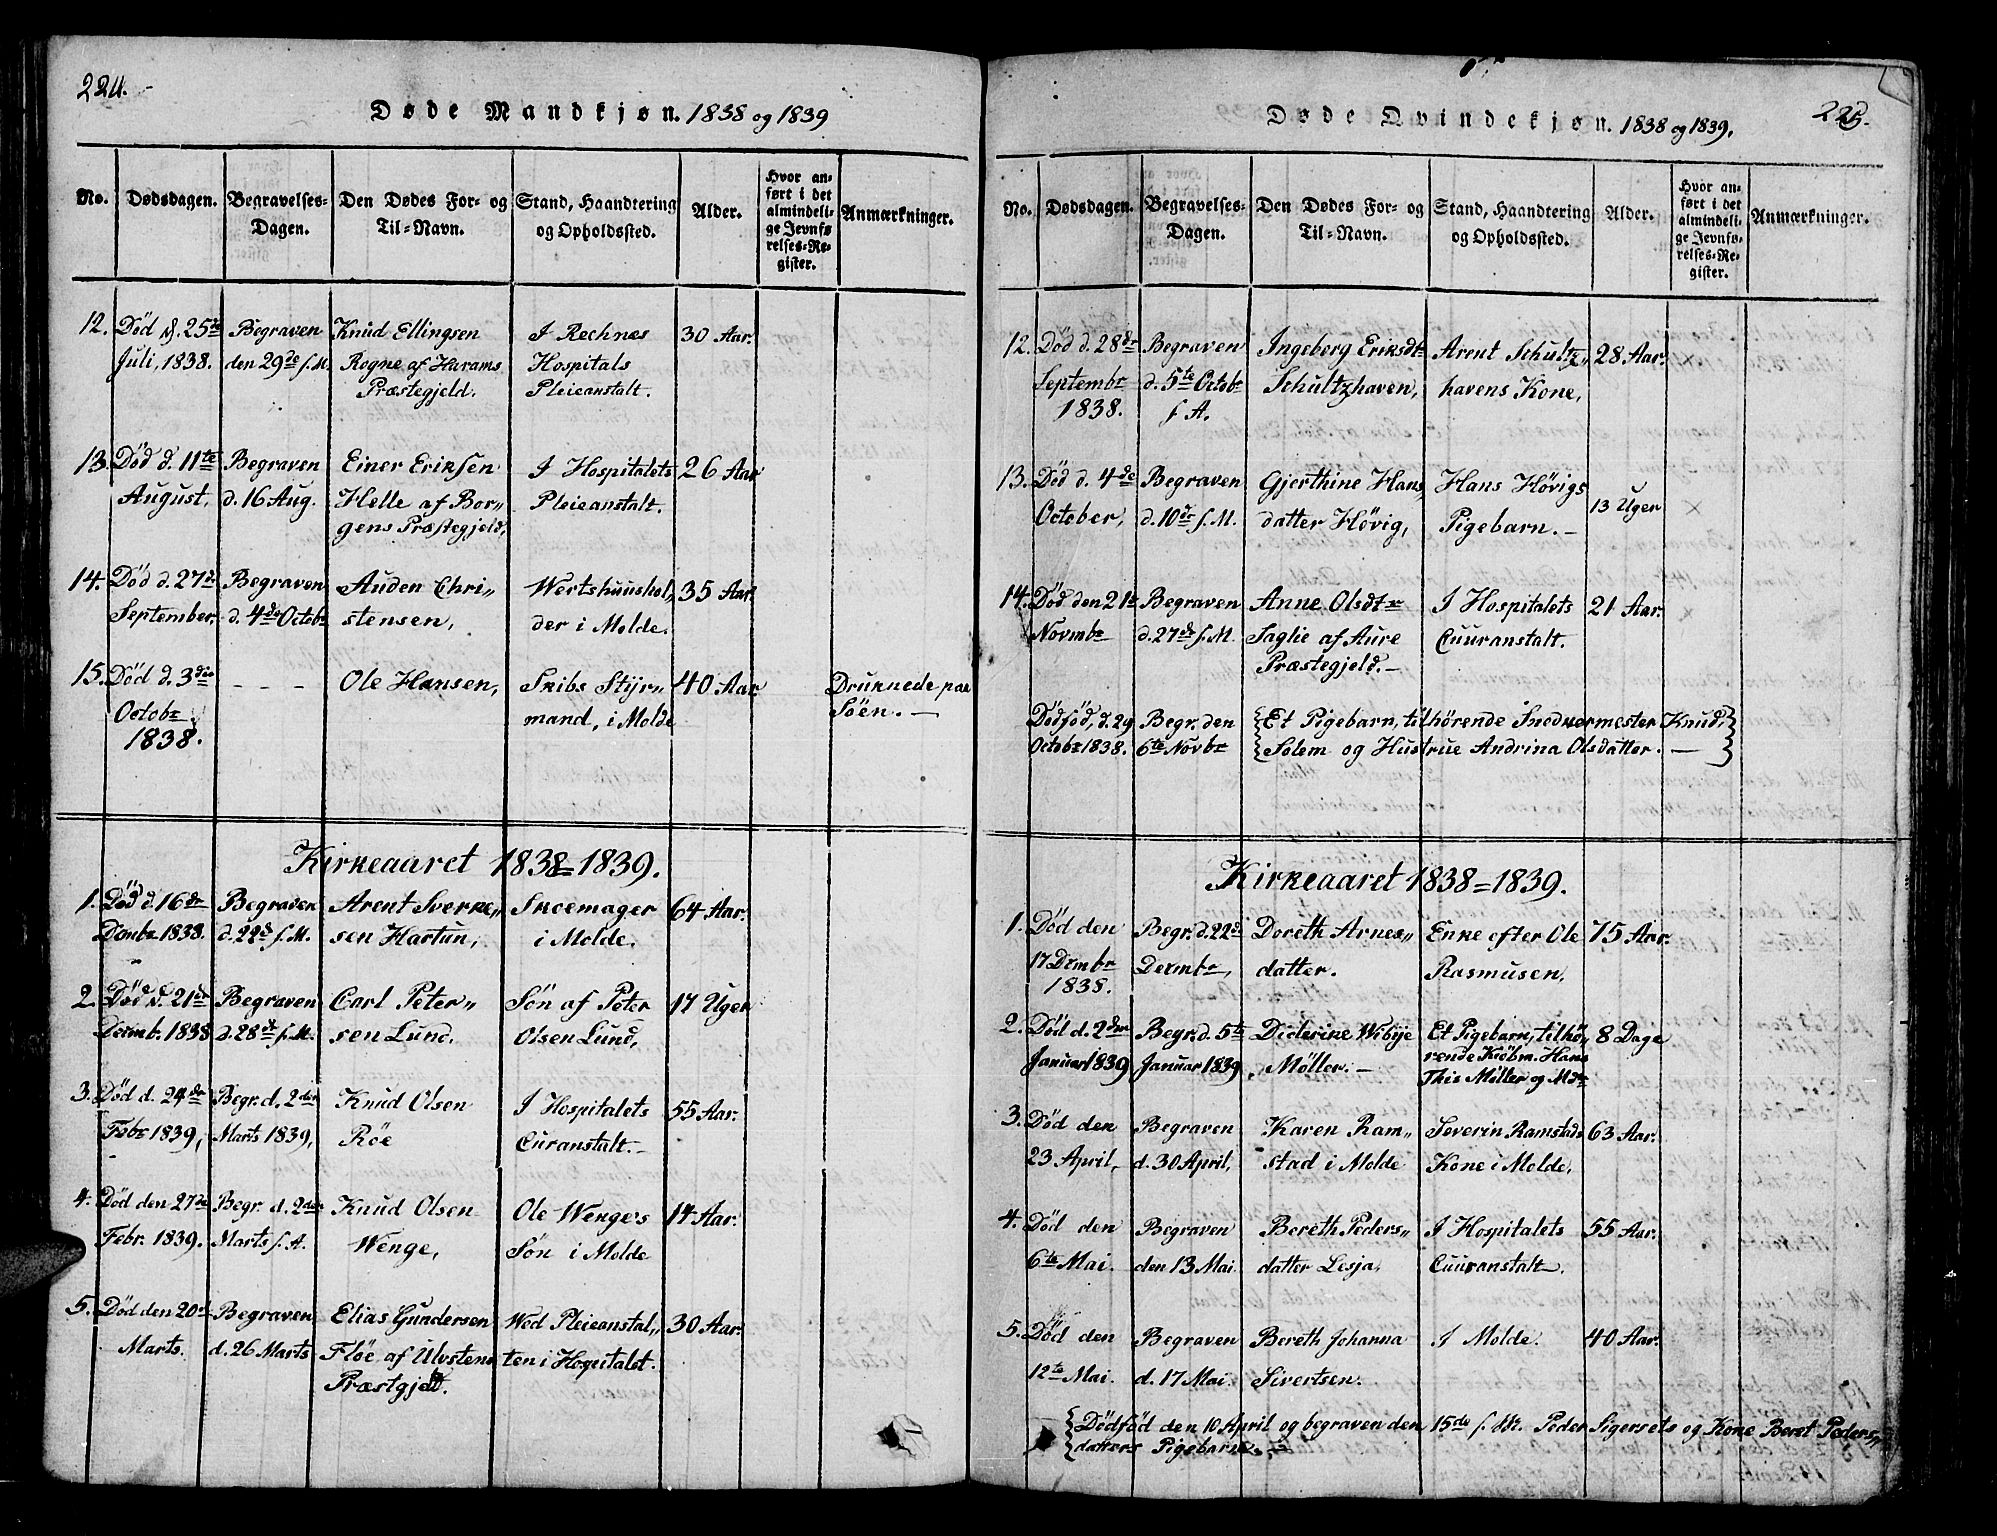 224.
Døde Mandkjøn. 1838 og 1839
No.
Dødsdagen.
Begravelses-
Dagen.
Den Dødes For- og
Til-Navn.
Stand, Haandtering
og Opholdssted.
Alder.
Hvor an-
ført i det
almindeli-
ge Jevnfø-
relses-Re-
gister.
Anmærkninger.
12. Død d. 25de Begraven Knud Ellingsen I Rechnes 30 Aar.
Juli, 1838. den 29de s. M. Rogne af Harams Hospitals
Præstegjeld. Pleieanstalt.
13. Død d. 11te Begraven Einer Eriksen I Hospitalets 26 Aar
August, d. 16 Aug. Helle af Bor„ Pleieanstalt.
gens Præstegjeld,
14. Død d. 27de Begraven Auden Chri„ Wertshuushol„ 35 Aar.
September, d. 4de Octobr stensen, der i Molde.
15. Død d. 3die - - - Ole Hansen, Skibs Styr„ 40 Aar Druknede paa
Octobr mand, i Molde Søen. —
1838.
Kirkeaaret 1838=1839.
1. Død d. 16de Begraven Arent Sverke„ Skoemager 64 Aar.
Dcmbr 1838. d. 22de s. M. sen Hartun, i Molde.
2. Død d. 21de Begraven Carl Peter„ Søn af Peter 17 Uger
Decmb. 1838 d. 28de s. M. sen Lund. Olsen Lund,
3. Død d. 24de Begr. d. 2den Knud Olsen I Hospitalets 55 Aar.
Febr 1839, Marts 1839, Røe Curanstalt.-
4. Død den 27de Begr. d. 2den Knud Olsen Ole Wenges 14 Aar.
Febr. 1839. Marts s. A. Wenge, Søn i Molde
5. Død den 20de Begraven Elias Gundersen Wed Pleieanstal„ 30 Aar.
Marts. d. 26 Marts Fløe af Ulvstens ten i Hospitalet.
Præstgjeld.
225.
Døde Qvindekjøn. 1838 og 1839.
No.
Dødsdagen.
Begravelses-
Dagen.
Den Dødes For- og
Til-Navn.
Stand, Haandtering
og Opholdssted.
Alder.
Hvor an-
ført i det
almindeli-
ge Jevnfø-
relses-Re-
gister.
Anmærkninger.
12. Død d. 28de Begraven Ingeberg Eriksdtr Arent Schultz„ 28 Aar.
Septembr d. 5te Octobr Schultzhaven, havens Kone,
1838. s. A.
13. Død d. 4de Begraven Gjerthine Hans„ Hans Høvigs 13 Uger ×
October, d. 10de s. M. datter Høvig, Pigebarn. -
14. Død den 21te Begraven Anne Olsdtr I Hospitalets 21 Aar.
Novmbr d. 27de s. M. Saglie af Aure Cuuranstalt.
Præstegjeld. -
Dødfød, d. 29 Begr. den Et Pigebarn, tilhørende Snedkermester Knud
Octobr 1838. 6te Novbr Solem og Hustrue Andrina Olsdatter. —
Kirkeaaret 1838=1839.
1. Død den Begr. d. 22de Doreth Arnes„ Enke efter Ole 75 Aar.
17 Dcmbr Decmbr, datter. Rasmusen,
1838.
2. Død d. 2den Begr. d. 5te Diderike Wibije Et Pigebarn, tilhø„ 8 Dage
Januar 1839 Januar 1839, Møller. - rende Kiøbm. Hans
Thiis Møller og
3. Død den Begraven Karen Ram„ Severin Ramstads 63 Aar.
23 April, d. 30 April, stad i Molde Kone i Molde,
4. Død den Begraven Bereth Peders„ I Hospitalets 55 Aar.
6te Mai. den 13 Mai. datter Lesja, Cuuranstalt.
5. Død den Begraven Bereth Johanna I Molde. 40 Aar.
12te Mai. d. 17 Mai. Sivertsen.
Dødfød den 10 April og begraven den 15de s. M. Peder Sigersets og Kone Beret Peders„
datters Pigebarn.